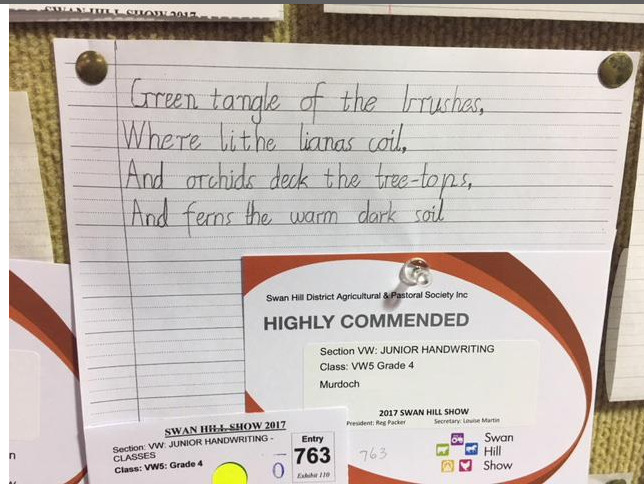 SWAN HILL SHOW 2017
Green tangle of the brushes,
Where lithe lianas coil,
And orchids deck the tree-tops,
And ferns the warm dark soil
Swan Hill District Agricultural & Pastoral Society Inc
HIGHLY COMMENDED
Section VW: JUNIOR HANDWRITING
Class: VW5 Grade 4
Murdoch
2017 SWAN HILL SHOW
President: Reg Packer Secretary: Louise Martin
763
Swan
Hill
Show
SWAN HILL SHOW 2017
Section: VW: JUNIOR HANDWRITING -
CLASSES
Class: VW5: Grade 4
Entry
763
Exhibit 110
0
n